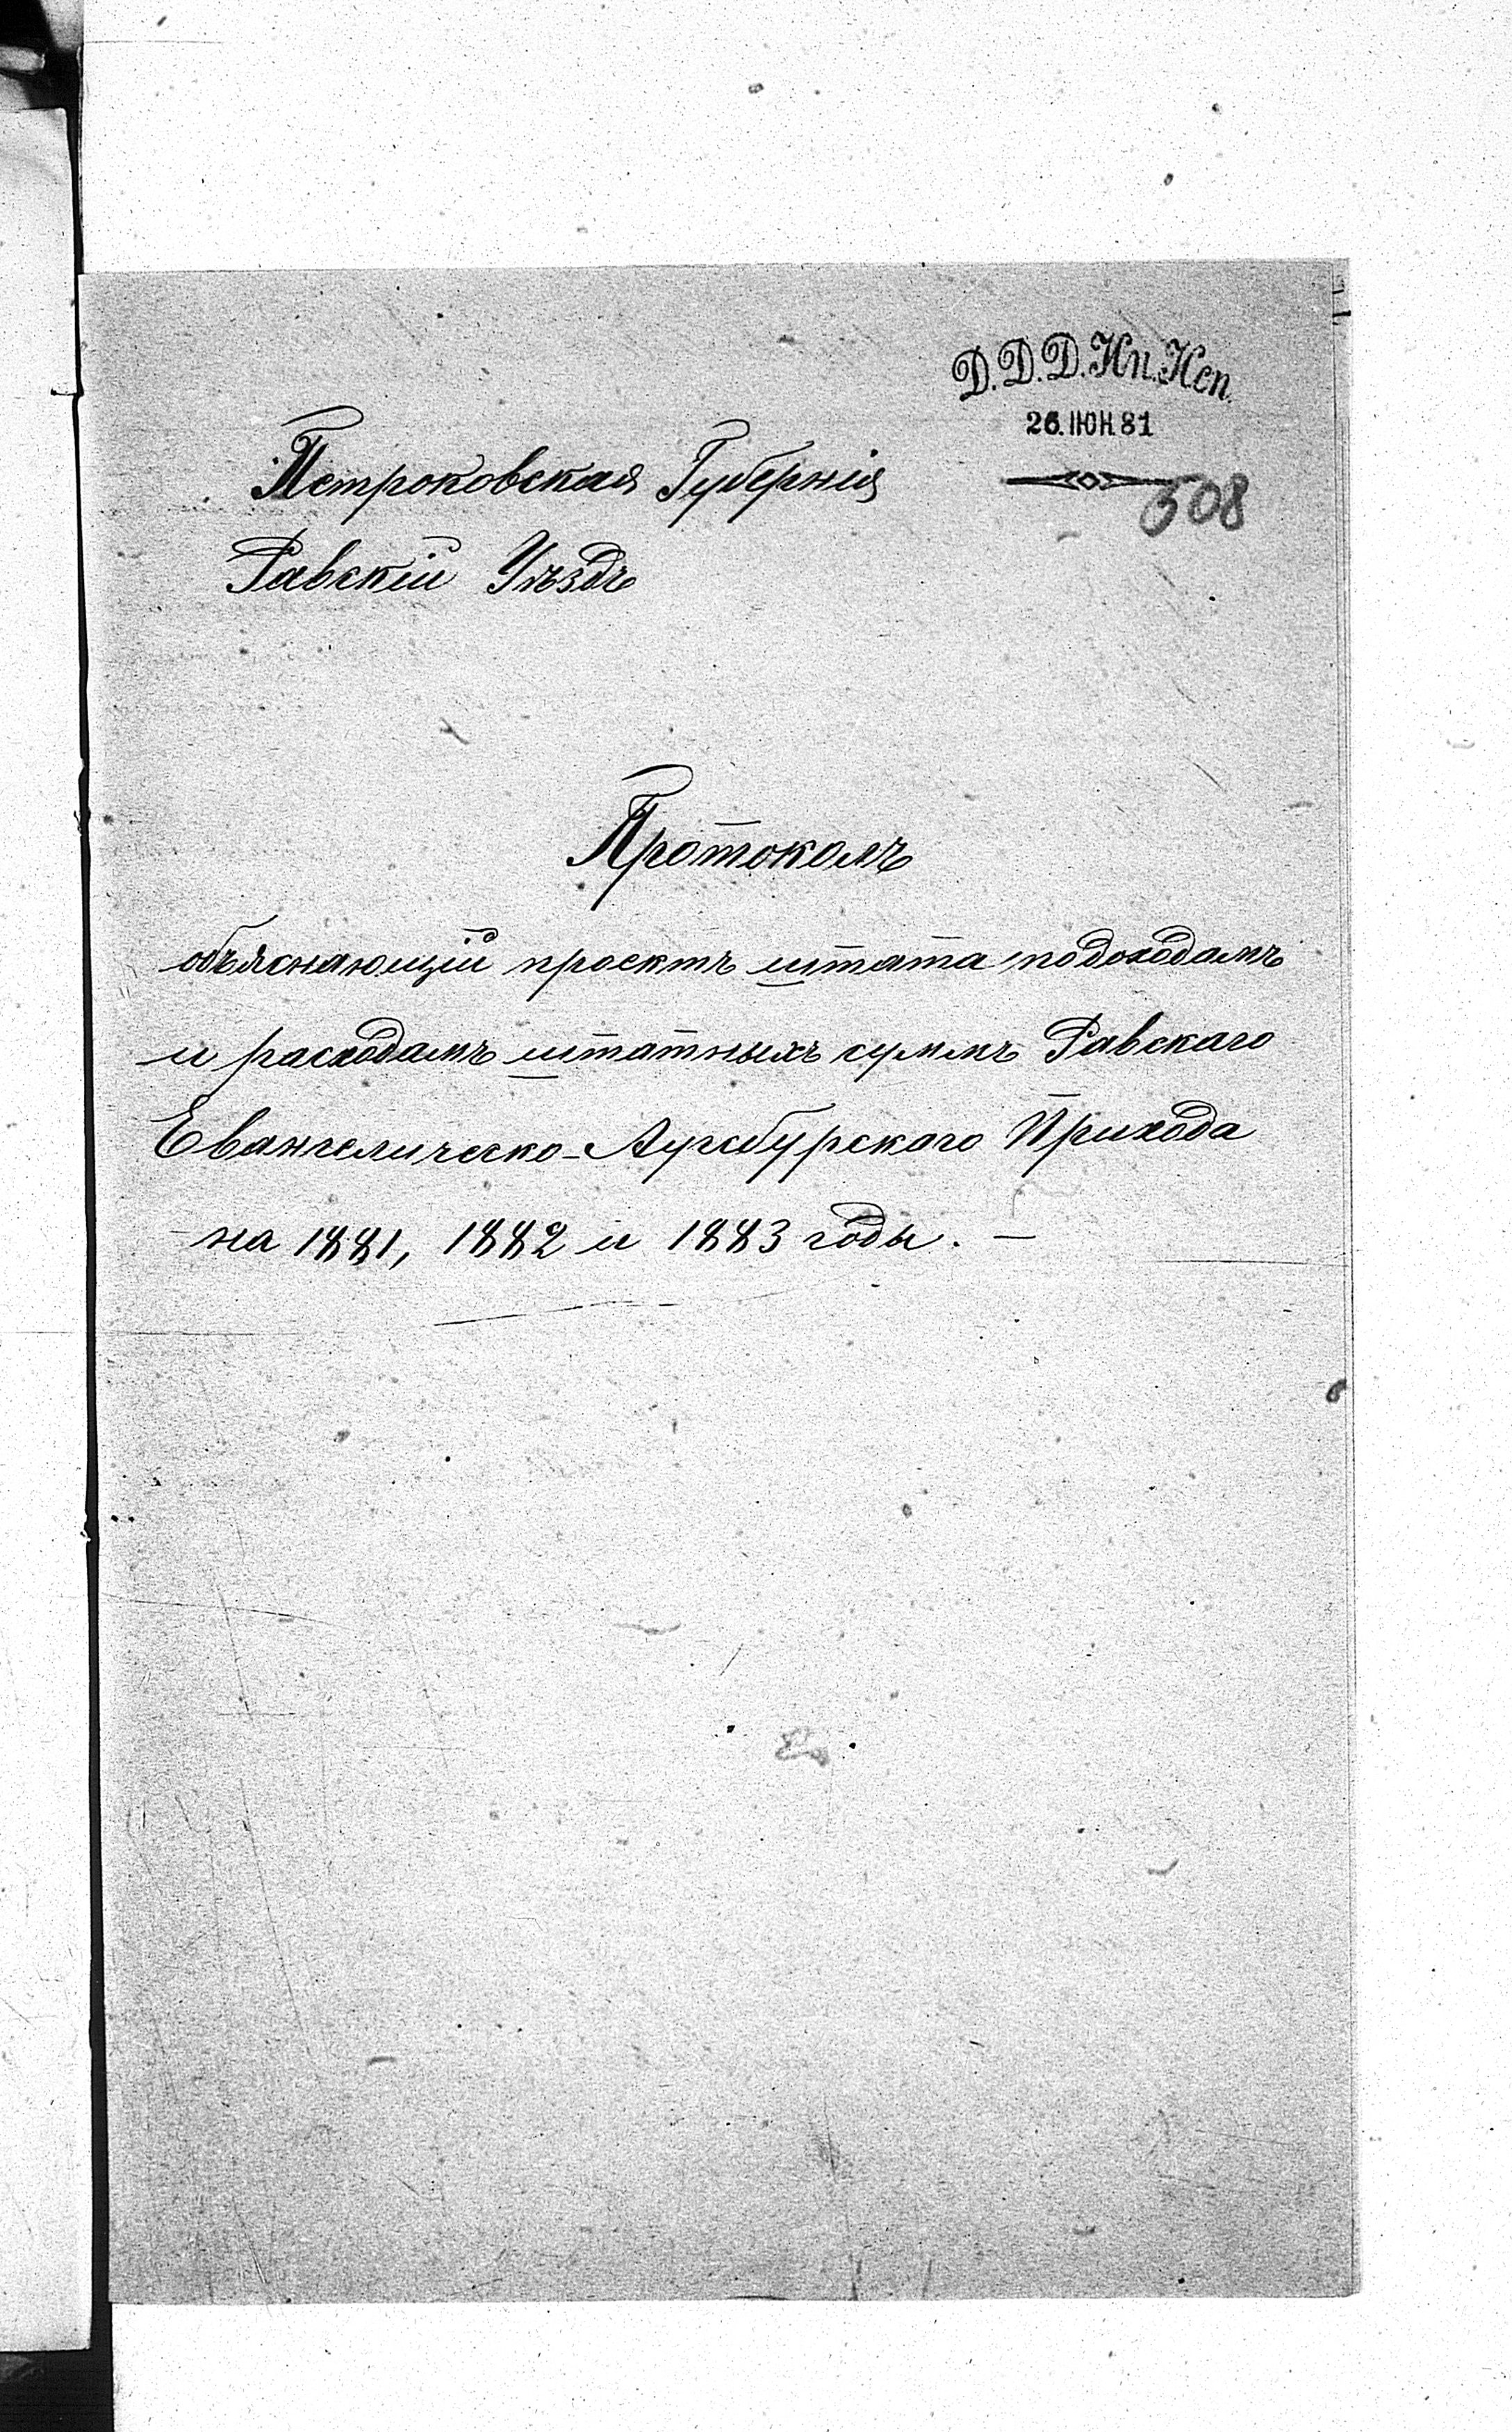 Д.Д.Д.Ин.Исп.
26.ІЮН.81
508
Петроковская Губернія
Равскій Уѣздъ
Протоколъ
объяснающій проектъ штата по доходамъ
и расходамъ штатныхъ суммъ Равскаго
Евангелическо-Аугсбурскаго Прихода
на 1881, 1882 и 1883 годы. —